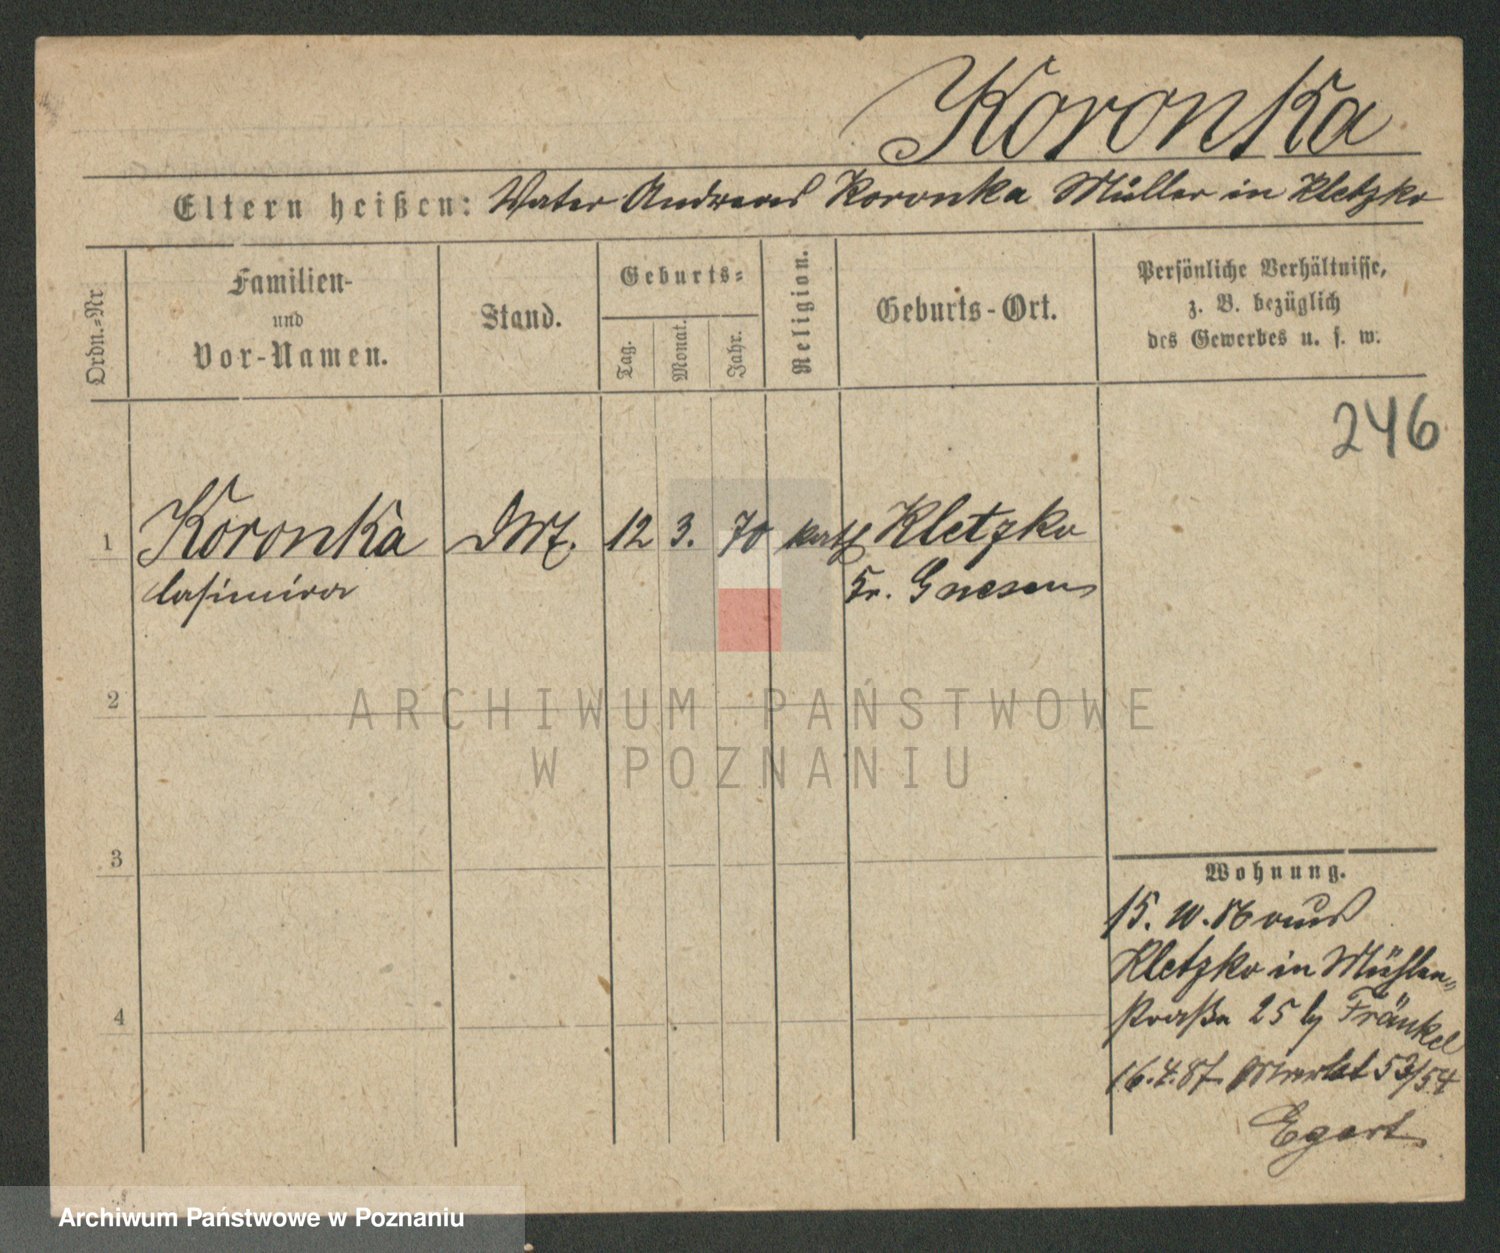 Koronka
Eltern heißen: Vater Andreas Koronka Müller in Kletzko
Ordn.=Nr
Familien-
und
Vor-Namen.
Stand.
Geburts=
Tag.
Monat.
Jahr.
Religion.
Geburts-Ort.
Persönliche Verhältnisse,
z. B. bezüglich
des Gewerbes u. s. w.
246
1 Koronka 12 3. 70 kath Kletzko
Casimira Kr. Gnesen
2
ARCHIWUM PAŃSTWOWE
W POZNANIU
3
Wohnung.
15. aus
Kletzko in Mühlen=
straße 25 by Fränkel
16.4.87. Markt 53/54
Egert
4
Archiwum Państwowe w Poznaniu